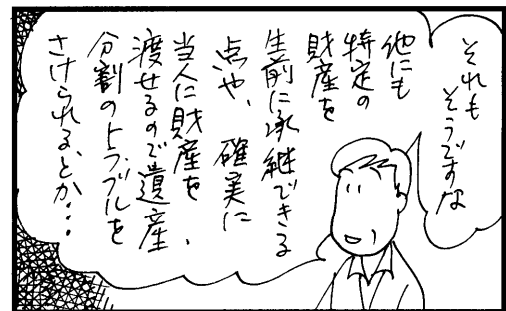 それも
そうですな
他にも
特定の
財産を
生前に承継できる
点や、確実に
当人に財産を、
渡せるので遺産
分割のトラブルを
さけられるとか・・